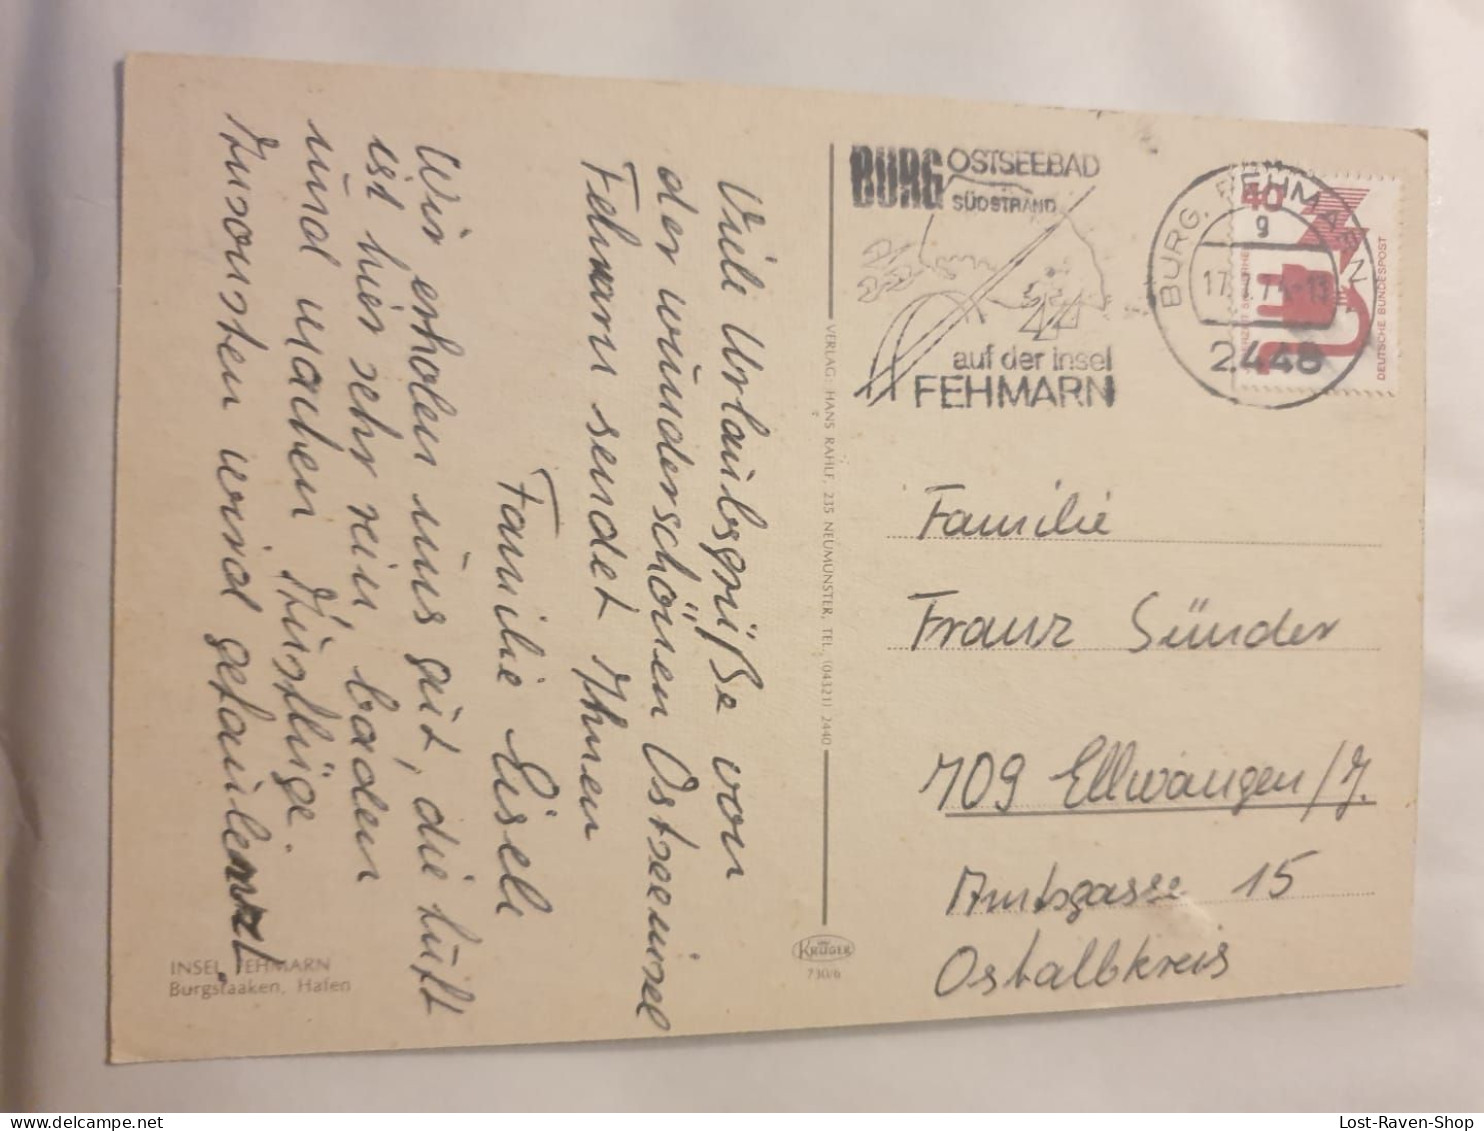 Viele Urlaubsgrüße von
der wunderschönen Ostseeinsel
Fehmarn sendet Ihnen
Familie Eisele
Wir erholen uns gut, die Luft
ist hier sehr rein, baden
und machen Ausflüge.
Ansonsten wird gefaulenzt.
INSEL FEHMARN
Burgstaaken, Hafen
VERLAG: HANS RAHLF, 235 NEUMÜNSTER, TEL. (04321) 2440
KRÜGER
730/6
BURG OSTSEEBAD
SÜDSTRAND
auf der Insel
FEHMARN
BURG, FEHMARN
g
17.7.74-13
2448
40
DEUTSCHE BUNDESPOST
Familie
Franz Sünder
709 Ellwangen/J.
Amtsgasse 15
Ostalbkreis
Lost-Raven-Shop